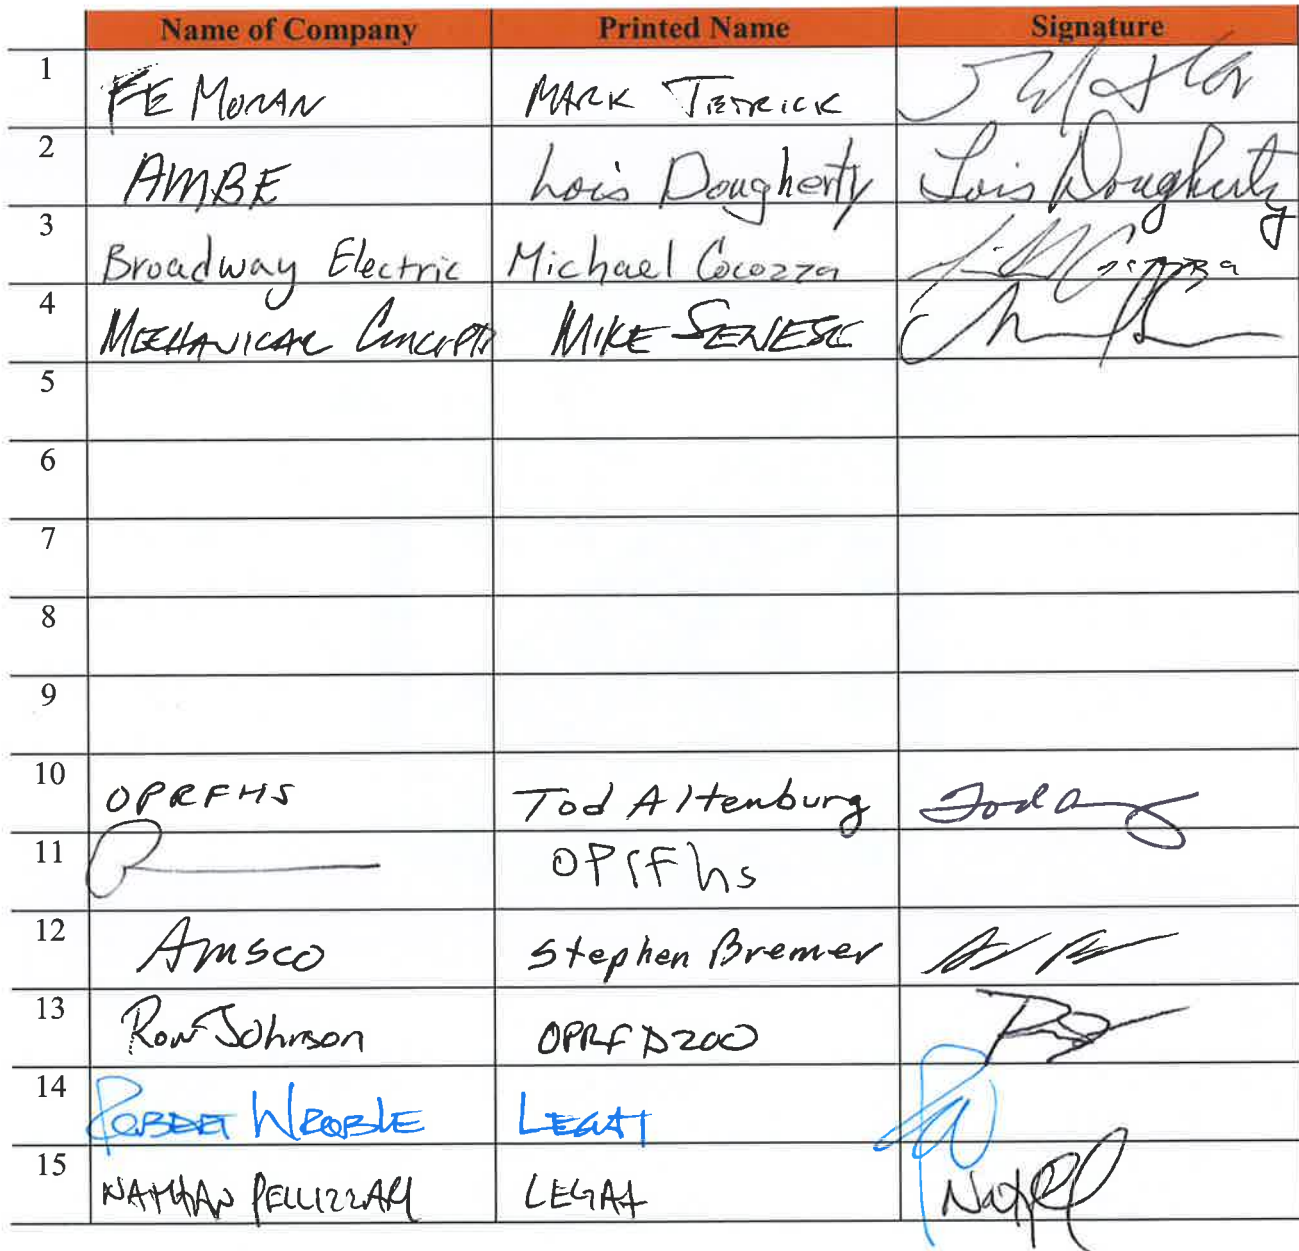 Name of Company Printed Name Signature
1 FE MORAN MARK TETRICK
2 AMBE Lois Dougherty Lois Dougherty
3 Broadway Electric Michael Cocozza
4 MECHANICAL CONCEPTS MIKE SENESE
5
6
7
8
9
10 OPRFHS Tod Altenburg
11 OPrFhs
12 Amsco Stephen Bremer
13 Ron Johnson OPRF D200
14 ROBERT WROBLE LEGAT
15 NATHAN PELLIZZARI LEGAT